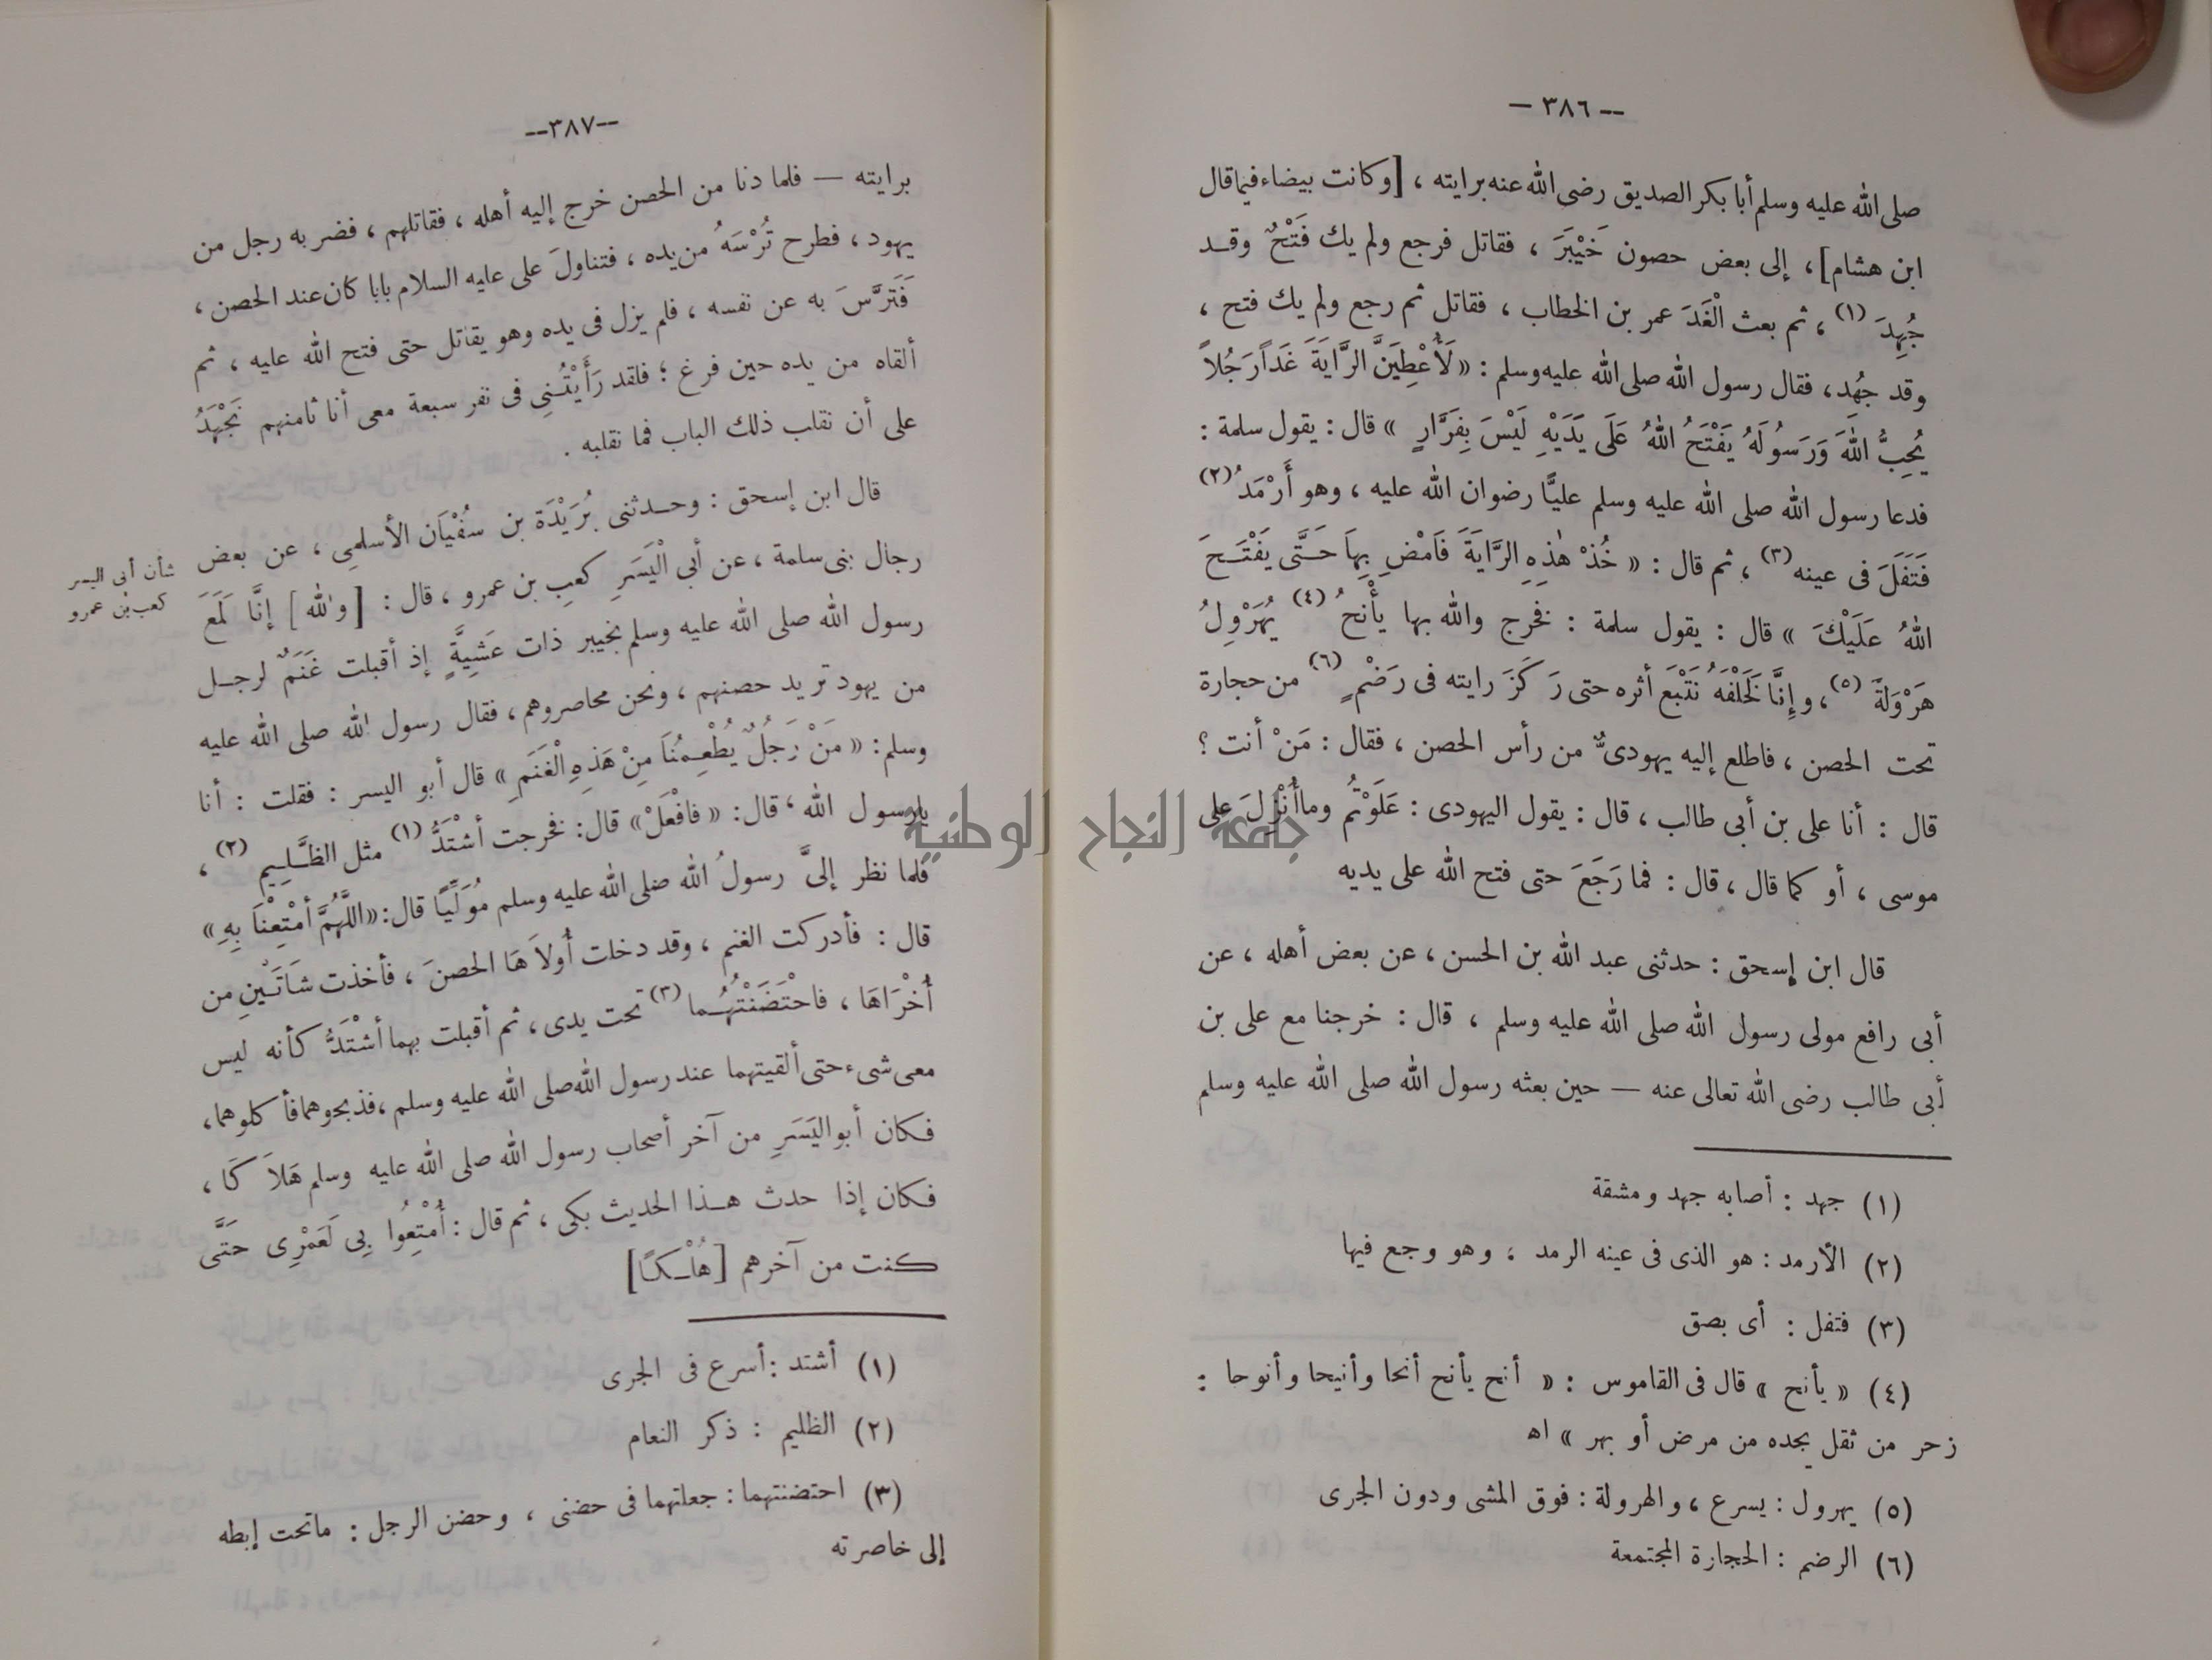 — ٣٨٦ —
صلى الله عليه وسلم أبا بكر الصديق رضى الله عنه برايته ، [وكانت بيضاء فيما قال
ابن هشام] ، إلى بعض حصون خَيْبَرَ ، فقاتل فرجع ولم يك فَتْحٌ وقد
جُهِدَ (١) ، ثم بعث الْغَدَ عمر بن الخطاب ، فقاتل ثم رجع ولم يك فتح ،
وقد جهُد ، فقال رسول الله صلى الله عليه وسلم : « لَأُعْطِيَنَّ الرَّايَةَ غَداً رَجُلاً
يُحِبُّ اللهَ وَرَسُولَهُ يَفْتَحُ اللهُ عَلَى يَدَيْهِ لَيْسَ بِفَرَّارٍ » قال : يقول سلمة :
فدعا رسول الله صلى الله عليه وسلم عليًّا رضوان الله عليه ، وهو أَرْمَدُ (٢)
فَتَفَلَ فى عينه (٣) ، ثم قال : « خُذْ هٰذِهِ الرَّايَةَ فَامْضِ بِهاَ حَتَّى يَفْتَحَ
اللهُ عَلَيْكَ » قال : يقول سلمة : فخرج والله بها يأْنحُ (٤) يُهَرْوِلُ
هَرْوَلَةً (٥) ، وإنَّا لَخَلْفَهُ نَتْبَع أثره حتى رَكَزَ رايته فى رَضْمٍ (٦) من حجارة
تحت الحصن ، فاطلع إليه يهودىٌّ من رأس الحصن ، فقال : مَنْ أنت ؟
قال : أنا على بن أبى طالب ، قال : يقول اليهودى : عَلَوْتُم وما أُنْزِلَ على
موسى ، أو كما قال ، قال : فما رَجَعَ حتى فتح الله على يديه
قال ابن إسحق : حدثنى عبد الله بن الحسن ، عن بعض أهله ، عن
أبى رافع مولى رسول الله صلى الله عليه وسلم ، قال : خرجنا مع على بن
أبى طالب رضى الله تعالى عنه — حين بعثه رسول الله صلى الله عليه وسلم
(١) جهد : أصابه جهد ومشقة
(٢) الأرمد : هو الذى فى عينه الرمد ، وهو وجع فيها
(٣) فتفل : أى بصق
(٤) « يأنح » قال فى القاموس : « أنح يأنح أنحا وأنيحا وأنوحا :
زحر من ثقل يجده من مرض أو بهر » اه
(٥) يهرول : يسرع ، والهرولة : فوق المشى ودون الجرى
(٦) الرضم : الحجارة المجتمعة
--٣٨٧--
برايته — فلما دنا من الحصن خرج إليه أهله ، فقاتلهم ، فضربه رجل من
يهود ، فطرح تُرْسَهُ من يده ، فتناولَ على عليه السلام بابا كان عند الحصن ،
فَتَرَّسَ به عن نفسه ، فلم يزل فى يده وهو يقاتل حتى فتح الله عليه ، ثم
ألقاه من يده حين فرغ ؛ فلقد رَأَيْتُنِى فى نفر سبعة معى أنا ثامنهم نَجْهَدُ
على أن نقلب ذلك الباب فما نقلبه .
قال ابن إسحق : وحدثنى بُرَيْدَة بن سفْيَان الأسلمى ، عن بعض
رجال بنى سلمة ، عن أبى الْيَسَرِ كعبِ بن عمرو ، قال : [والله] إنَّا لَمَعَ
رسول الله صلى الله عليه وسلم بخيبر ذات عَشِيَّةٍ إذ أقبلت غَنَمٌ لرجل
من يهود تريد حصنهم ، ونحن محاصروهم ، فقال رسول الله صلى الله عليه
وسلم : « مَنْ رَجُلٌ يُطْعِمُنَا مِنْ هَذِهِ الْغَنَمِ » قال أبو اليسر : فقلت : أنا
يا رسول الله ، قال : « فافْعَلْ » قال : فخرجت أشْتَدُّ (١) مثل الظَّلِيمِ (٢) ،
فلما نظر إلىَّ رسولُ الله صلى الله عليه وسلم مُوَلِّيًا قال : « اللَّهُمَّ أمْتِعْنَا بِهِ »
قال : فأدركت الغنم ، وقد دخلت أُولاَهَا الحصنَ ، فأخذت شَاتَيْنِ من
أُخْرَاهَا ، فاحْتَضَنْتُهُما (٣) تحت يدى ، ثم أقبلت بهما أشْتَدُّ كأنه ليس
معى شىء حتى ألقيتهما عند رسول الله صلى الله عليه وسلم ، فذبحوهما فأكلوهما ،
فكان أبو اليَسَرِ من آخر أصحاب رسول الله صلى الله عليه وسلم هَلاَكًا ،
فكان إذا حدث هذا الحديث بكى ، ثم قال : أُمْتِعُوا بِى لَعَمْرِى حَتَّى
كنت من آخرهم [هُلْكًا]
شأن أبى اليسر
كعب بن عمرو
(١) أشتد : أسرع فى الجرى
(٢) الظليم : ذكر النعام
(٣) احتضنتهما : جعلتهما فى حضنى ، وحضن الرجل : ماتحت إبطه
إلى خاصرته
جامعة النجاح الوطنية